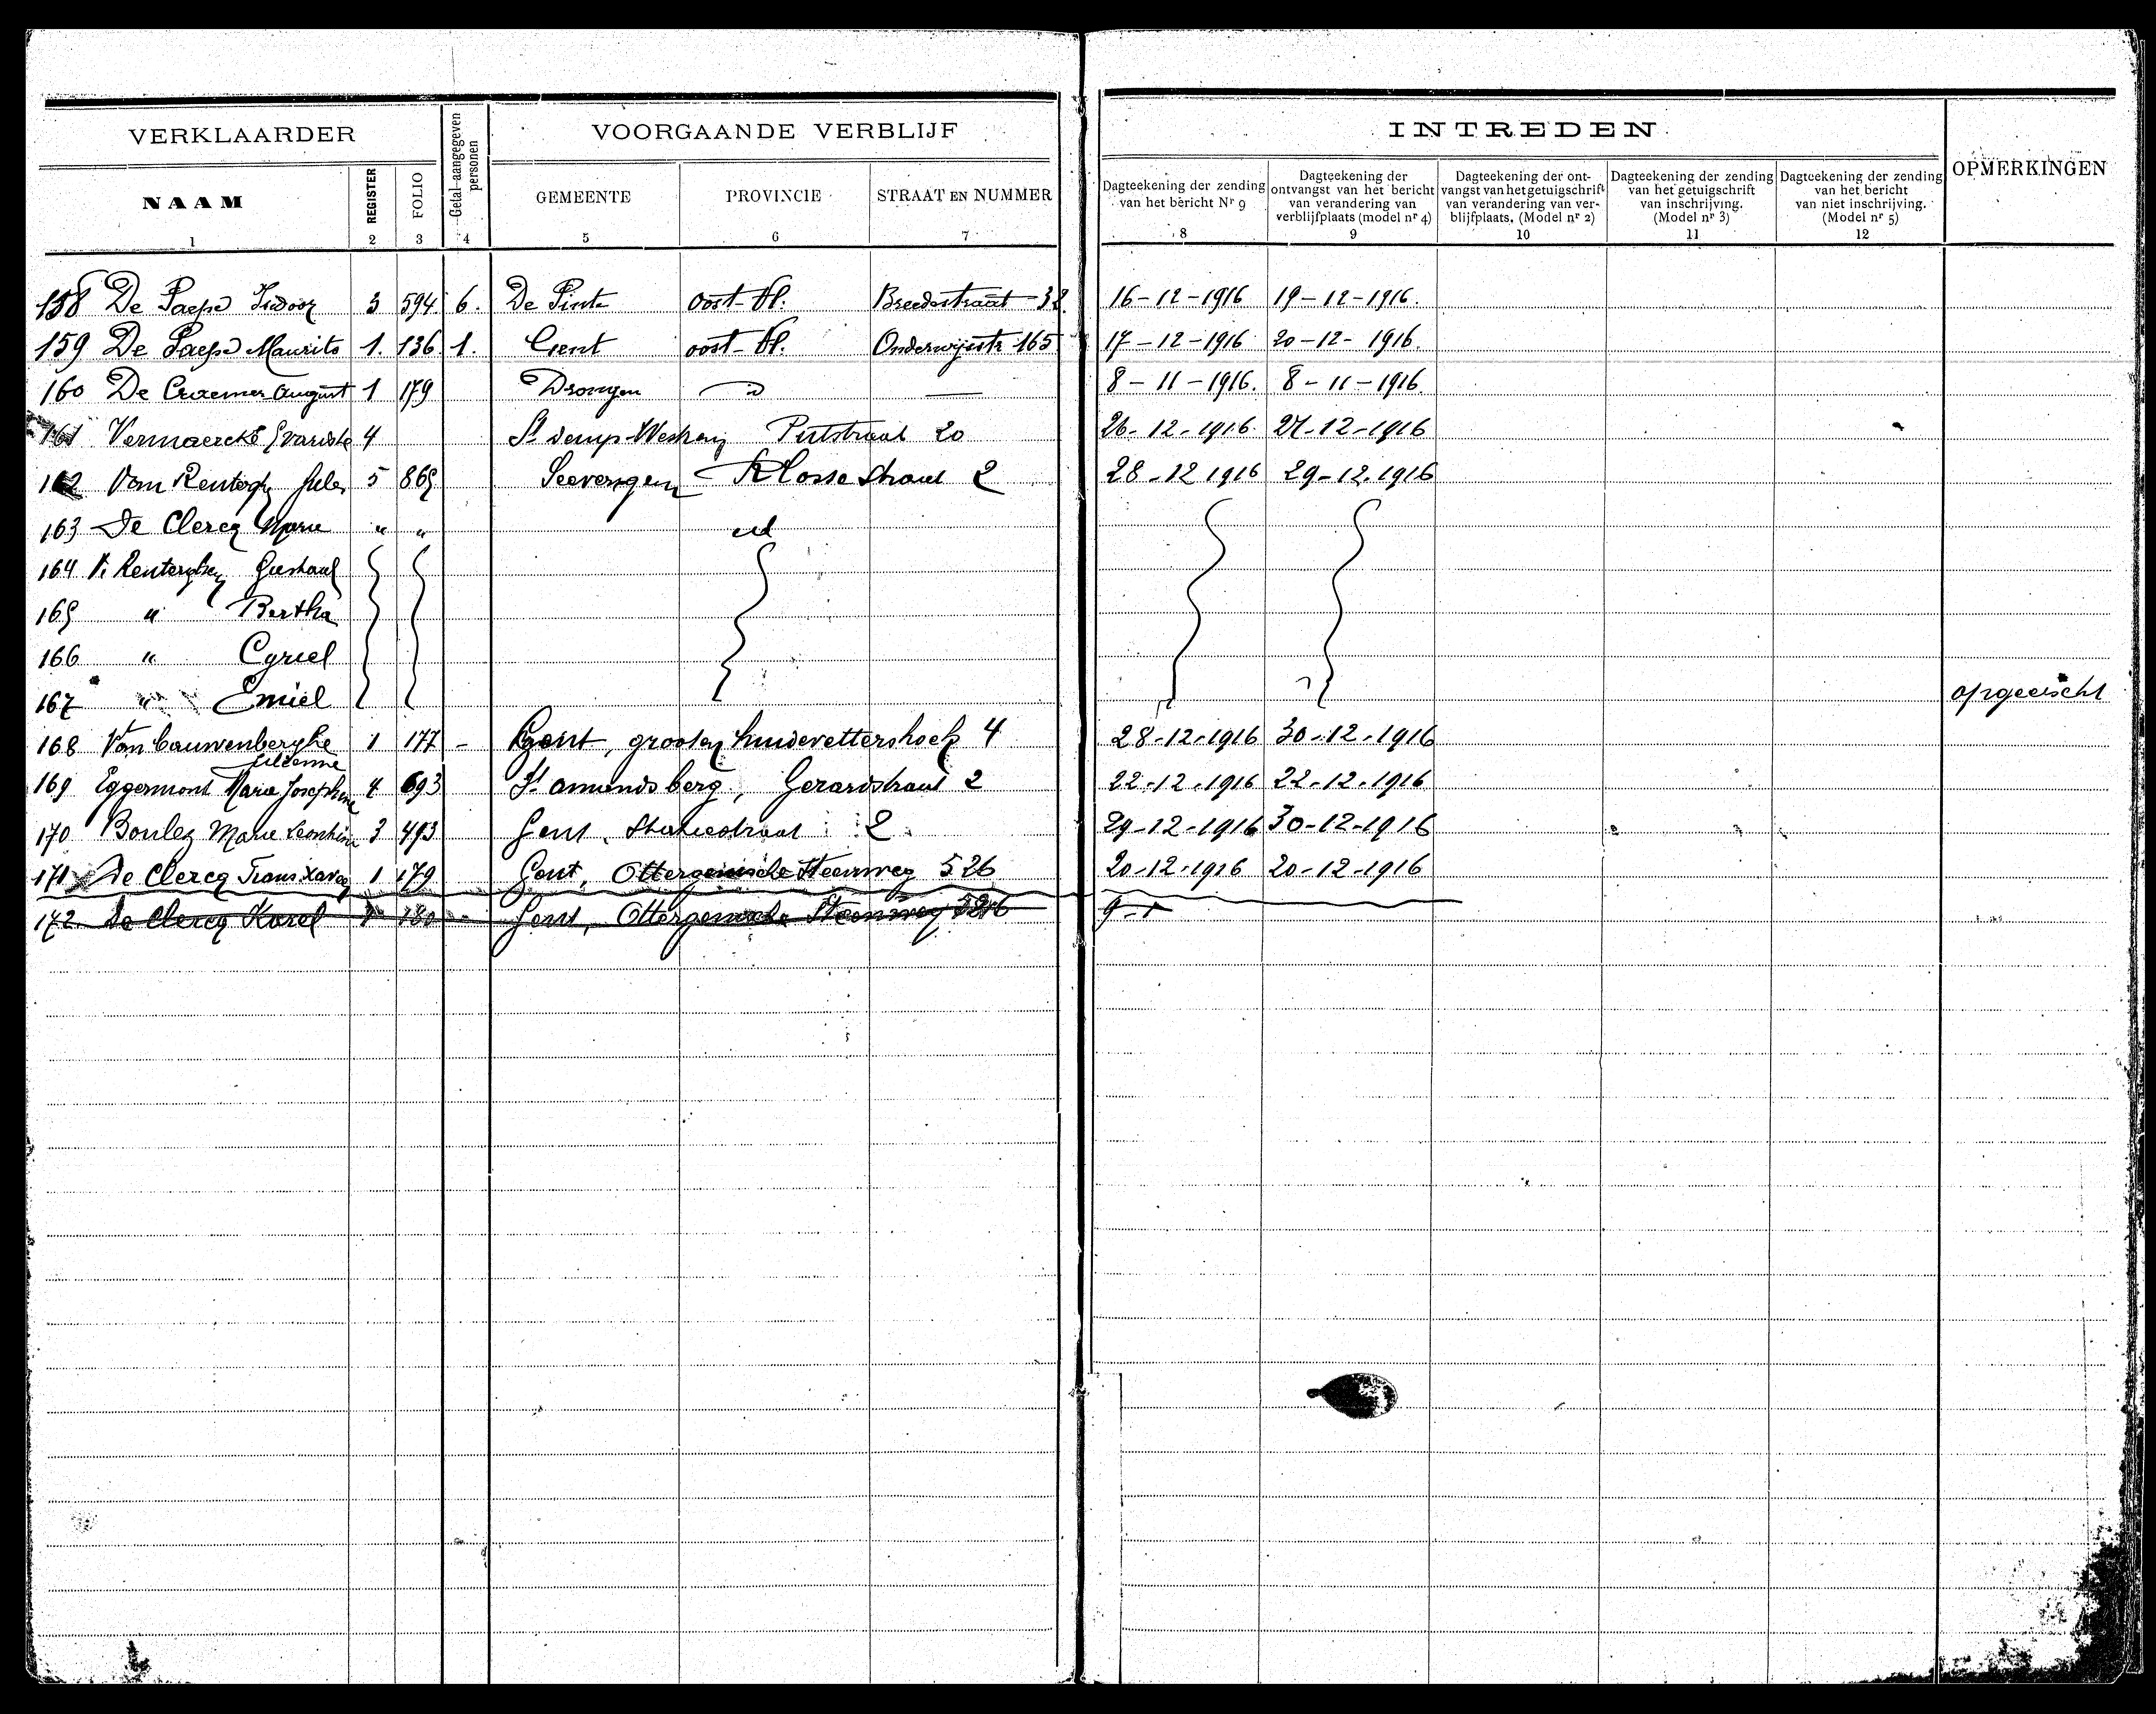 VERKLAARDER
Getal aangegeven personen
VOORGAANDE VERBLIJF
INTREDEN
OPMERKINGEN
NAAM
REGISTER
FOLIO
GEMEENTE
PROVINCIE
STRAAT EN NUMMER
Dagteekening der zending
van het bericht Nr 9
Dagteekening der
ontvangst van het bericht
van verandering van
verblijfplaats (model nr 4)
Dagteekening der ont-
vangst van het getuigschrift
van verandering van ver-
blijfplaats. (Model nr 2)
Dagteekening der zending
van het getuigschrift
van inschrijving.
(Model nr 3)
Dagteekening der zending
van het bericht
van niet inschrijving.
(Model nr 5)
1 2 3 4 5 6 7 8 9 10 11 12
158 De Paepe Isidoor 3 594 6. De Pinte oost-Vl. Breedestraat 16-12-1916 19-12-1916.
159 De Paepe Maurits 1. 136 1. Gent oost-Vl. Onderwijsstr 165 17-12-1916 20-12-1916.
160 De Craemer August 1 179 Drongen 8-11-1916. 8-11-1916.
161 Vermaercke Evariste 4 Putstraat 20 26-12-1916. 27-12-1916
162 Van Jules 5 865 2 28-12 1916 29-12.1916
163 De Clercq Marie " " id
164 V. Renterghem Gustaaf
165 " Bertha
166 " Cyriel
167 " Emiel opgeeischt
168 Van Cauwenberghe 1 177 - Gent, grooten huidevettershoek 4 28-12-1916 30-12-1916
169 Eggermont Marie Josephine 4 693 St Amandsberg, Gerardstraat 2 22-12-1916 22-12-1916
170 Boulez Marie Leonhine 3 493 Gent, 2 29-12-1916 30-12-1916
171 De Clercq Frans Xavier 1 179 Gent, Ottergemsche Steenweg 526 20-12-1916 20-12-1916
172 De Clercq Karel 1 180 - Gent, Ottergemsche Steenweg